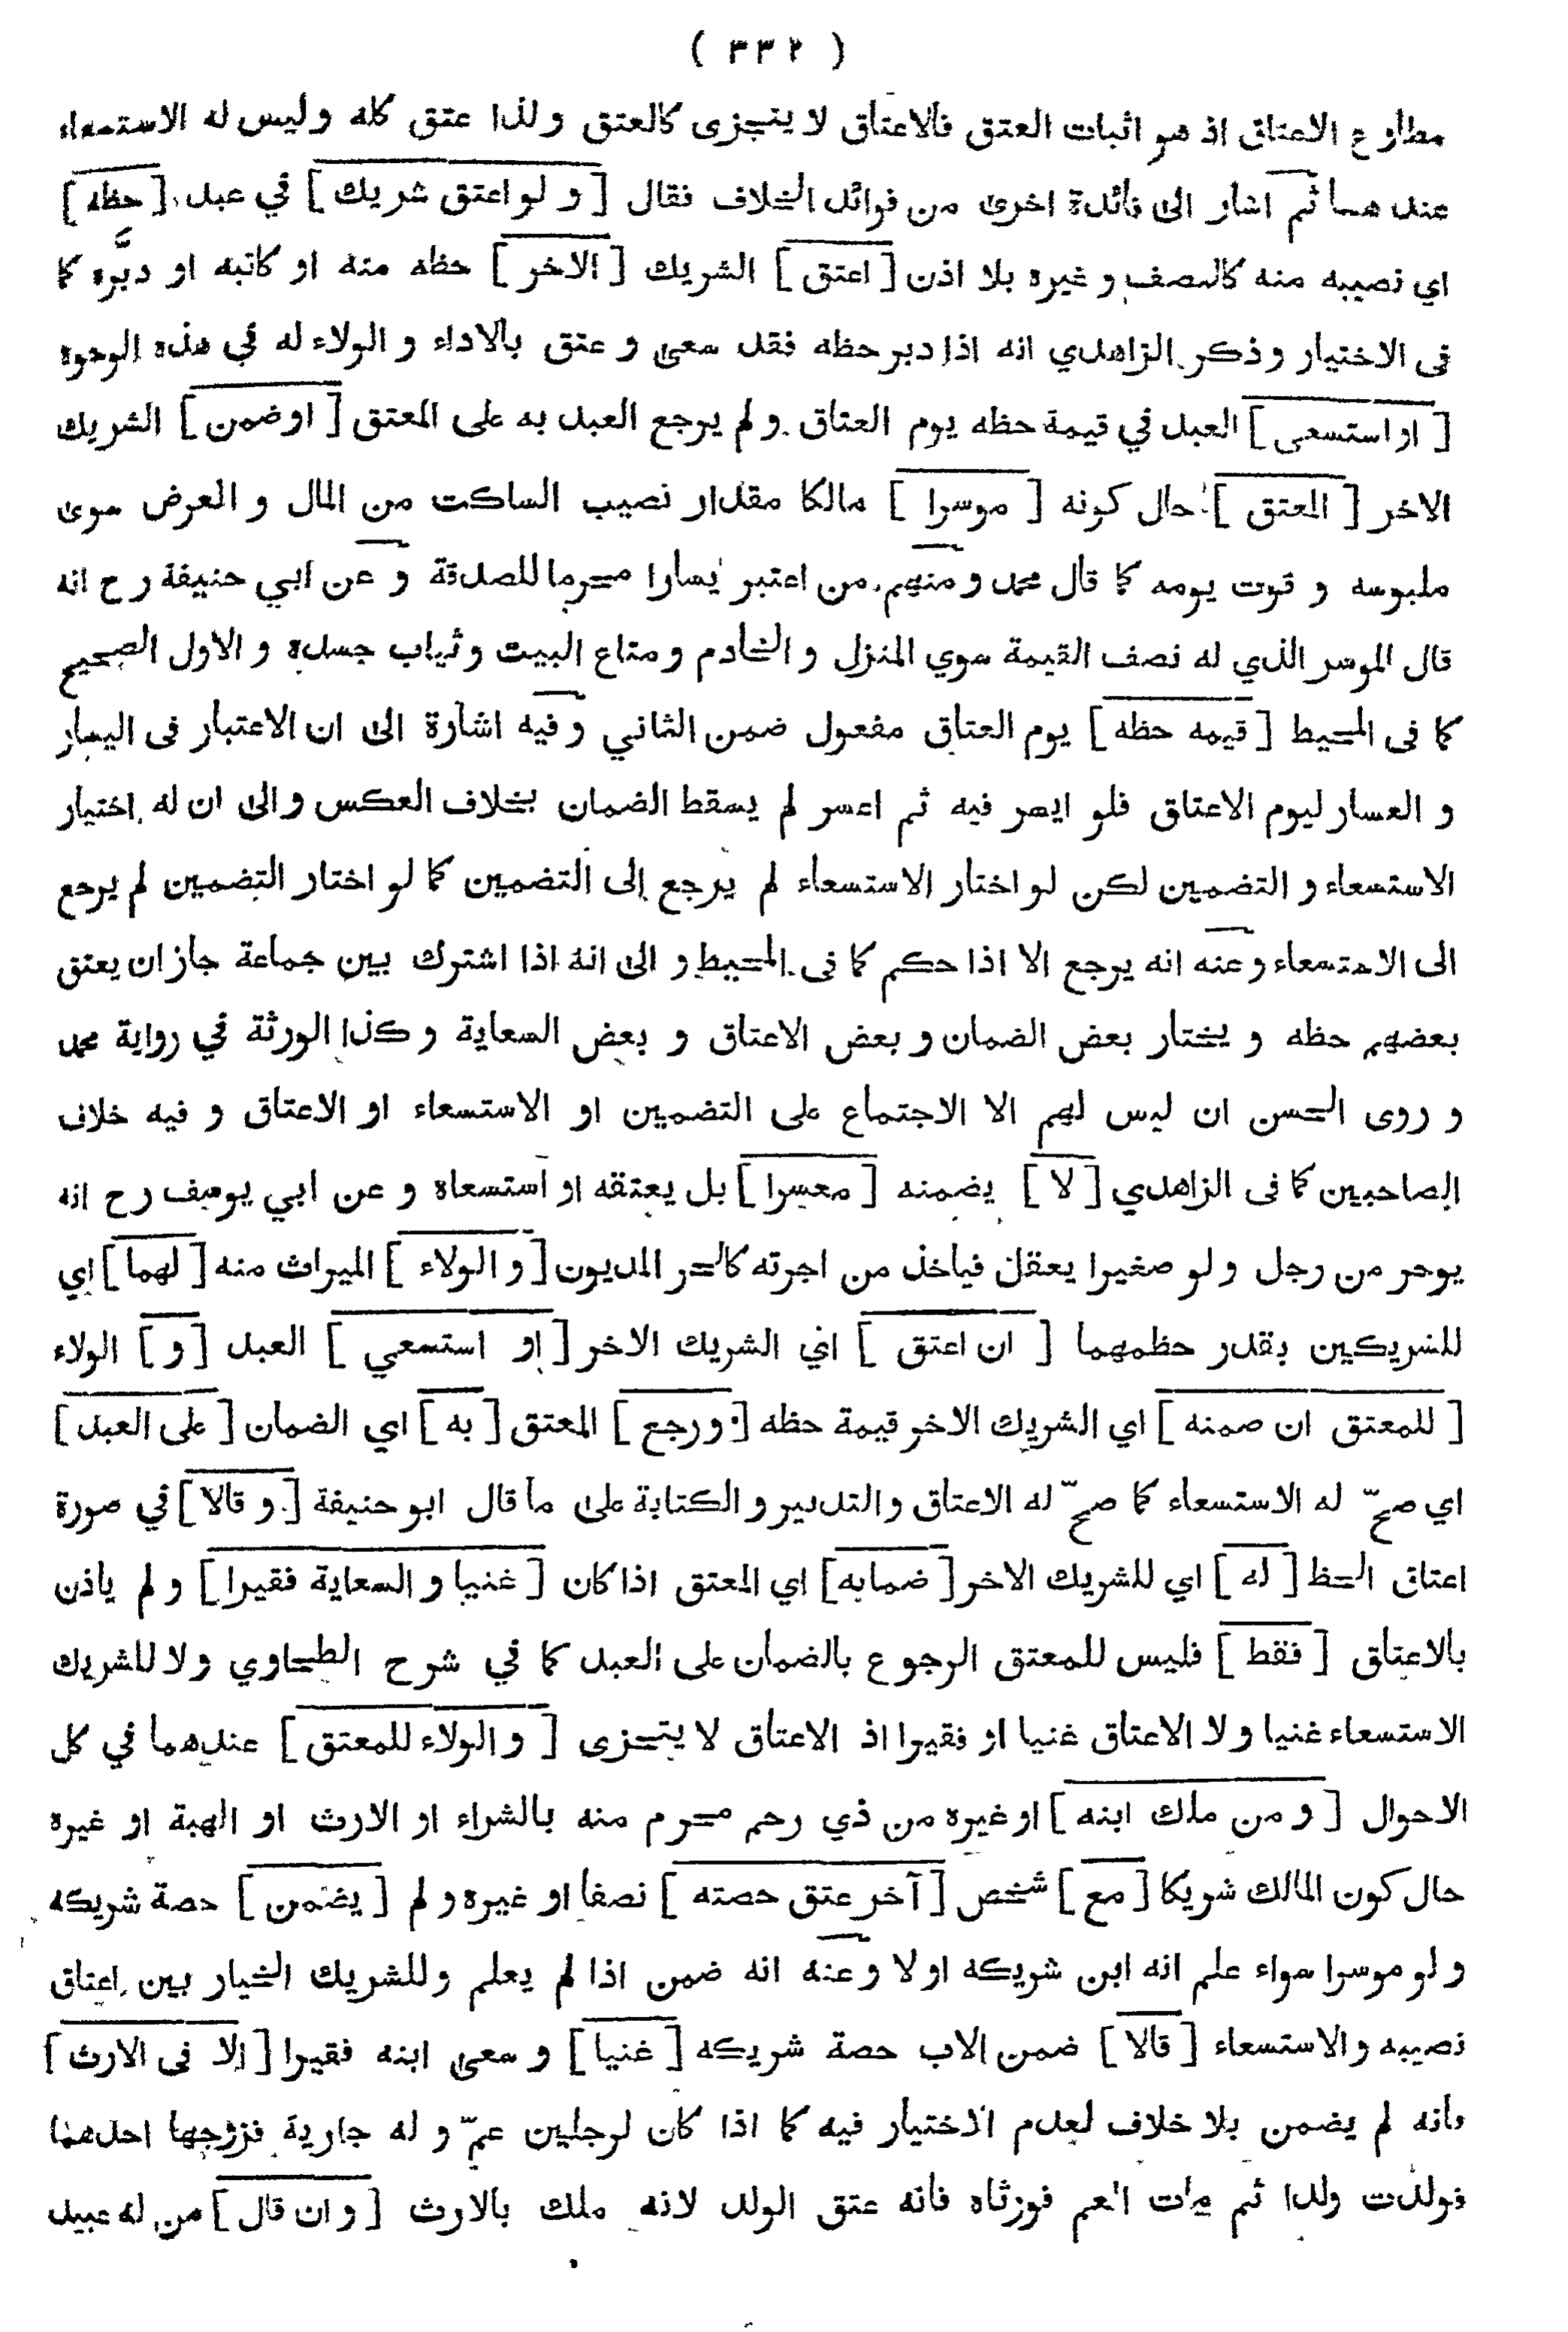 ( ٣٣٢ )
مطاوع الاعتاق اذ هو اثبات العتق فالاعتاق لا يتجزى كالعتق ولذا عتق كله وليس له الاستسعاء
عندهما ثم اشار الى فائدة اخرى من فوائد الخلاف فقال [ ولو اعتق شريك ] في عبد [ حظه ]
اي نصيبه منه كالنصف وغيره بلا اذن [ اعتق ] الشريك [ الاخر ] حظه منه او كاتبه او دبّره كما
فى الاختيار وذكر الزاهدي انه اذا دبر حظه فقد سعى وعتق بالاداء والولاء له في هذه الوجوه
[ او استسعى ] العبد في قيمة حظه يوم العتاق ولم يرجع العبد به على المعتق [ اوضمن ] الشريك
الاخر [ المعتق ] حال كونه [ موسرا ] مالكا مقدار نصيب الساكت من المال والعرض سوى
ملبوسه وقوت يومه كما قال محمد ومنهم من اعتبر يسارا محرما للصدقة وعن ابي حنيفة رح انه
قال الموسر الذي له نصف القيمة سوي المنزل والخادم ومتاع البيت وثياب جسده والاول الصحيح
كما فى المحيط [ قيمه حظه ] يوم العتاق مفعول ضمن الثاني وفيه اشارة الى ان الاعتبار فى اليسار
والعسار ليوم الاعتاق فلو ايسر فيه ثم اعسر لم يسقط الضمان بخلاف العكس والى ان له اختيار
الاستسعاء والتضمين لكن لو اختار الاستسعاء لم يرجع الى التضمين كما لو اختار التضمين لم يرجع
الى الاستسعاء وعنه انه يرجع الا اذا حكم كما فى المحيط والى انه اذا اشترك بين جماعة جاز ان يعتق
بعضهم حظه ويختار بعض الضمان وبعض الاعتاق وبعض السعاية وكذا الورثة في رواية محمد
وروى الحسن ان ليس لهم الا الاجتماع على التضمين او الاستسعاء او الاعتاق وفيه خلاف
الصاحبين كما فى الزاهدي [ لا ] يضمنه [ معسرا ] بل يعتقه او استسعاه وعن ابي يوسف رح انه
يوجر من رجل ولو صغيرا يعقل فياخذ من اجرته كالحر المديون [ والولاء ] الميراث منه [ لهما ] اي
للشريكين بقدر حظهما [ ان اعتق ] اي الشريك الاخر [ او استسعي ] العبد [ و ] الولاء
[ للمعتق ان ضمنه ] اي الشريك الاخر قيمة حظه [ ورجع ] المعتق [ به ] اي الضمان [ على العبد ]
اي صحّ له الاستسعاء كما صحّ له الاعتاق والتدبير والكتابة على ما قال ابو حنيفة [ وقالا ] في صورة
اعتاق الحظ [ له ] اي للشريك الاخر [ ضمانه ] اي المعتق اذا كان [ غنيا والسعاية فقيرا ] ولم ياذن
بالاعتاق [ فقط ] فليس للمعتق الرجوع بالضمان على العبد كما في شرح الطحاوي ولا للشريك
الاستسعاء غنيا ولا الاعتاق غنيا او فقيرا اذ الاعتاق لا يتجزى [ والولاء للمعتق ] عندهما في كل
الاحوال [ ومن ملك ابنه ] او غيره من ذي رحم محرم منه بالشراء او الارث او الهبة او غيره
حال كون المالك شريكا [ مع ] شخص [ آخر عتق حصته ] نصفا او غيره ولم [ يضمن ] حصة شريكه
ولو موسرا سواء علم انه ابن شريكه اولا وعنه انه ضمن اذا لم يعلم وللشريك الخيار بين اعتاق
نصيبه والاستسعاء [ قالا ] ضمن الاب حصة شريكه [ غنيا ] وسعى ابنه فقيرا [ الا فى الارث ]
فانه لم يضمن بلا خلاف لعدم الاختيار فيه كما اذا كان لرجلين عمّ وله جارية فزوجها احدهما
فولدت ولدا ثم مات العم فورثاه فانه عتق الولد لانه ملك بالارث [ وان قال ] من له عبيد